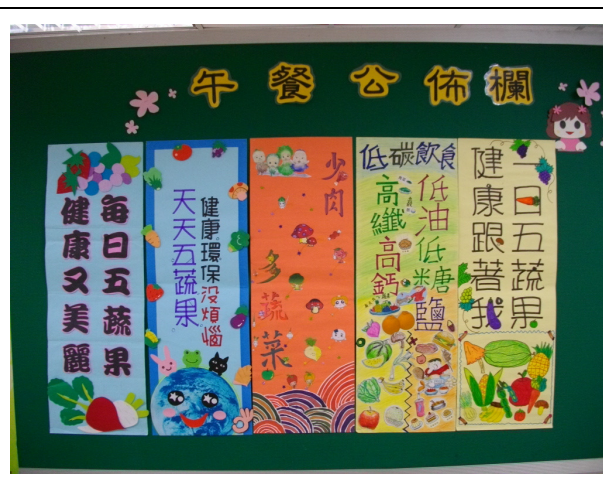 午餐公佈欄
每日五蔬果
健康又美麗
健康環保沒煩惱
天天五蔬果
少肉
多蔬菜
低碳飲食
低油低糖鹽
高纖高鈣
一日五蔬果
健康跟著我